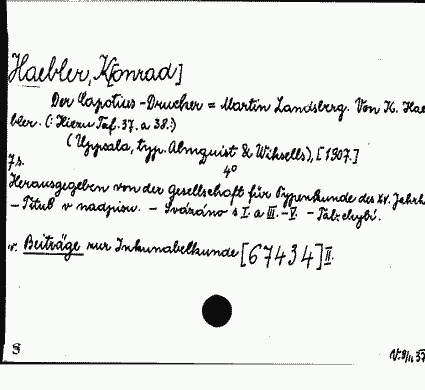 Haebler, K[onrad]
Der Capotius-Drucker = Martin Landsberg. Von K. Hae
bler. (: Hiezu Taf. 37. a 38.:)
(Uppsala, typ. Almquist & Wiksells), [1907.]
7 s. 4°
Herausgegeben von der Gesellschaft für Typenkunde des XV. Jahrh
- Titul v nadpisu. - Svázáno s I. a III.-V. - Tab. chybí.
v. Beiträge zur Inkunabelkunde [67434] II.
S